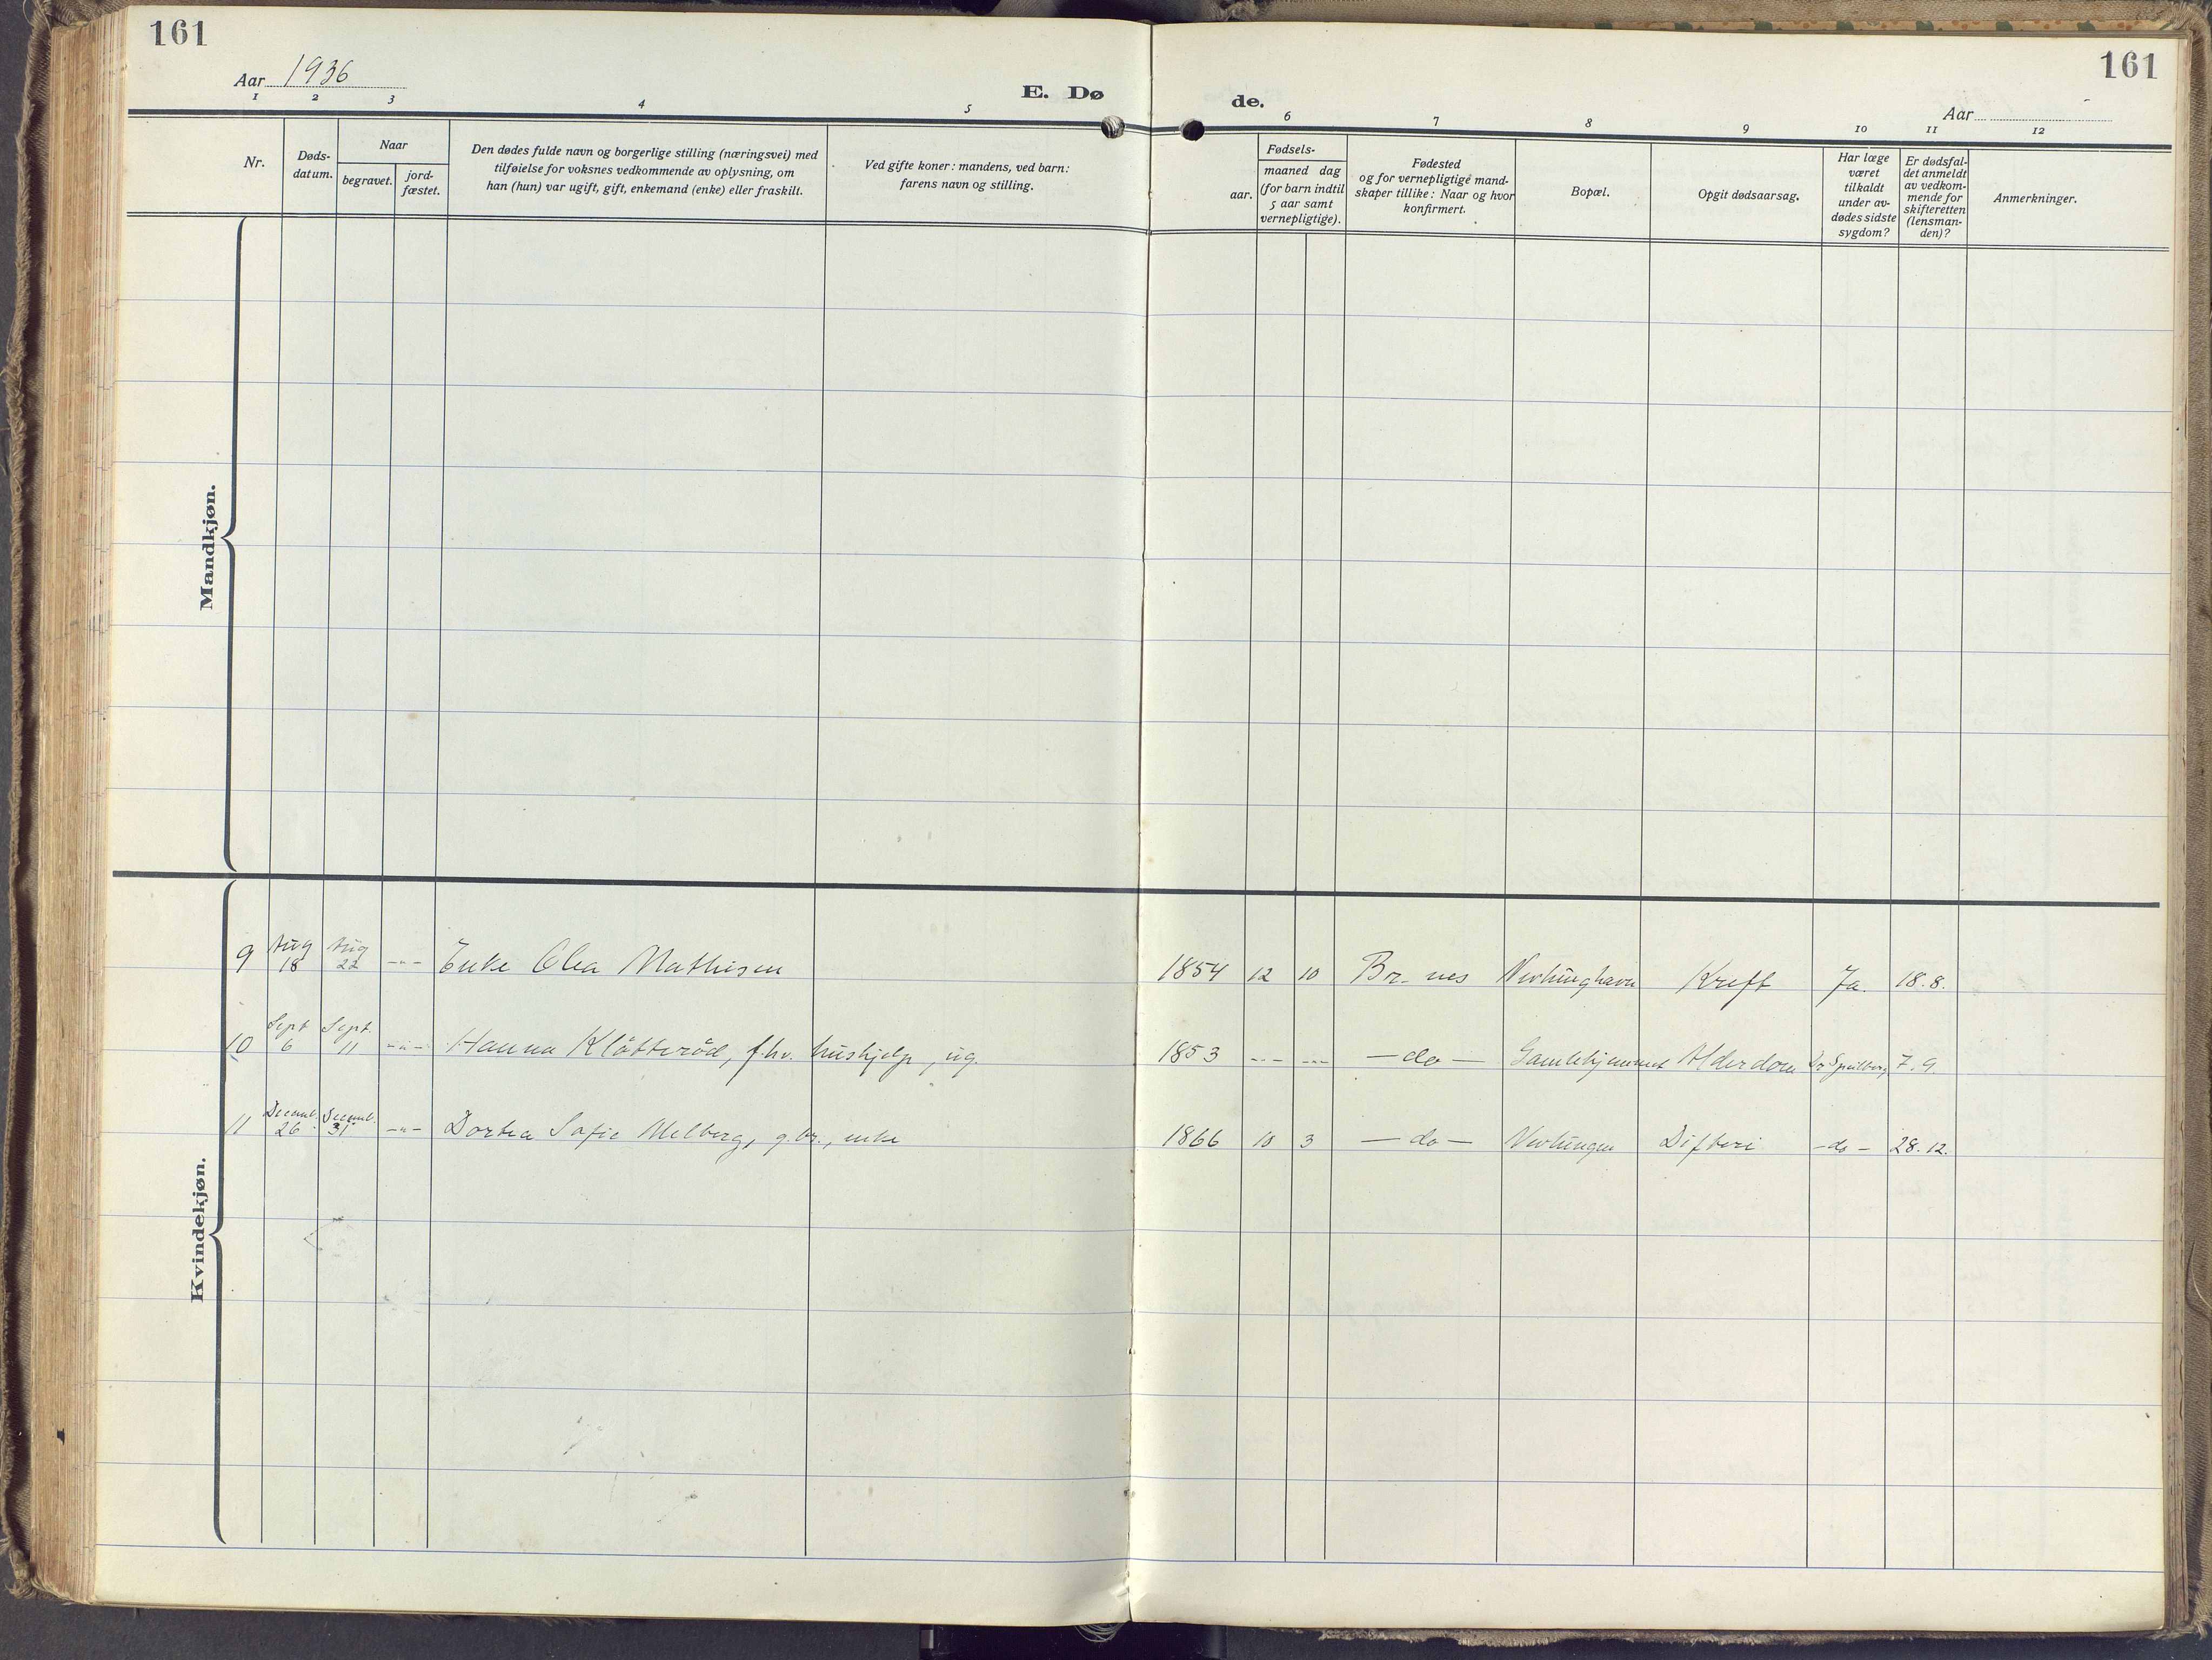 161
161
Aar 1936
E. Dø
de.
Aar
1 2 3 4 5 6 7 8 9 10 11 12
Nr.
Døds-
datum.
Naar
begravet.
jord-
fæstet.
Den dødes fulde navn og borgerlige stilling (næringsvei) med
tilføielse for voksnes vedkommende av oplysning, om
han (hun) var ugift, gift, enkemand (enke) eller fraskilt.
Ved gifte koner: mandens, ved barn:
farens navn og stilling.
Fødsels-
aar.
maaned dag
(for barn indtil
5 aar samt
vernepligtige).
Fødested
og for vernepligtige mand-
skaper tillike: Naar og hvor
konfirmert.
Bopæl.
Opgit dødsaarsag.
Har læge
været
tilkaldt
under av-
dødes sidste
sygdom?
Er dødsfal-
det anmeldt
av vedkom-
mende for
skifteretten
(lensman-
den)?
Anmerkninger.
Mandkjøn.
Kvindekjøn.
9 Aug 18 Aug 22 -„- Enke Olea Mathisen 1854 12 10 Br. nes Kreft Ja. 18.8.
10 Sept 6 Sept. 11 -„- Hanna Klåtterød, f.hv. hushjelp, ug. 1853 --- --- — do — Gamlehjemmet Alderdom Dr 7.9.
11 Decemb. 26 Decemb. 31 -„- Dortea Sofie Melberg, g.br., enke 1866 10 3 — do — Difteri - do - 28.12.